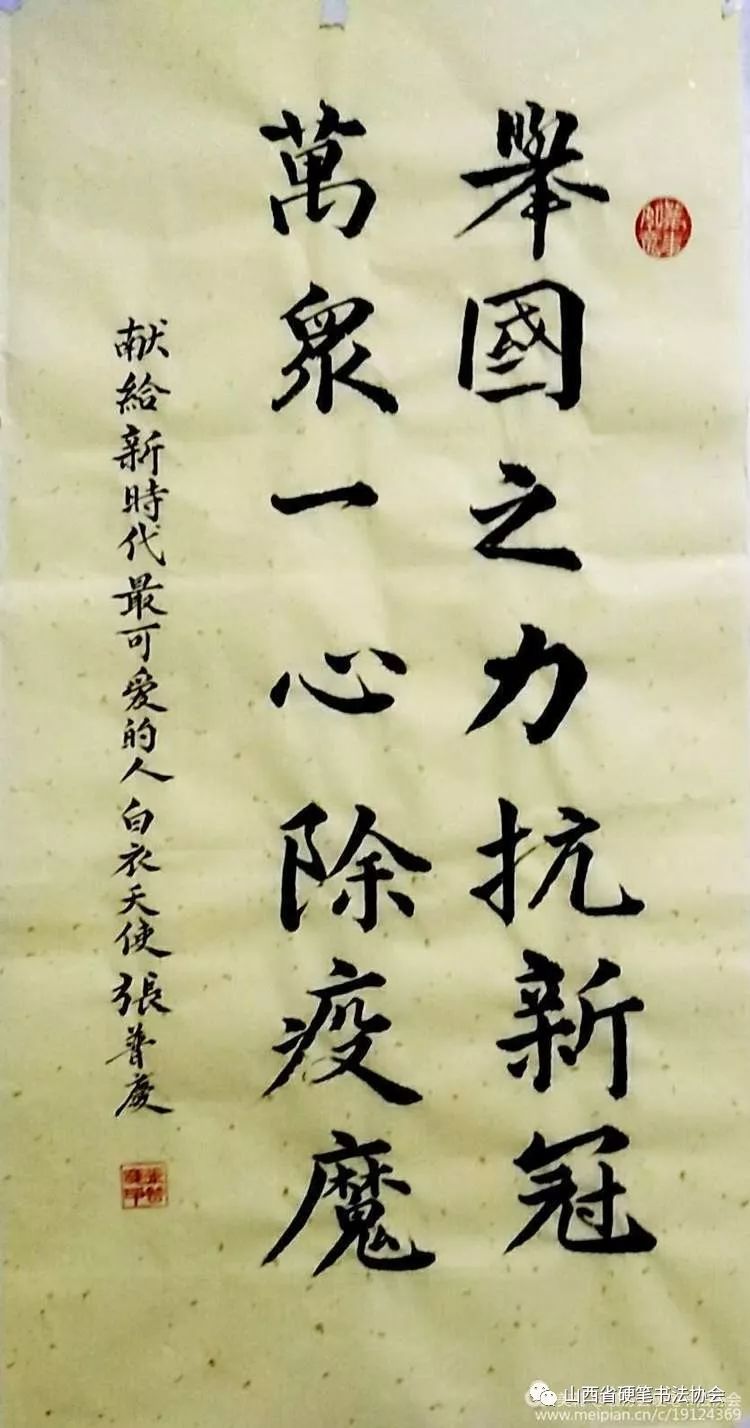 舉國之力抗新冠
萬眾一心除疫魔
献給新時代最可愛的人白衣天使張普慶
山西省硬笔书法协会
www.meipian.cn/c/19124369